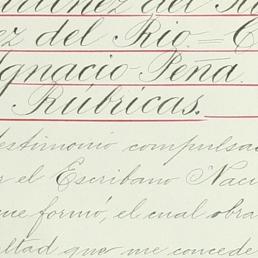 del
ez del Rio.=C
Ignacio Peña
Rúbricas.
testimonio compulsad
r el Escribano Naci
ue formó, el cual obra
ultad que me concede